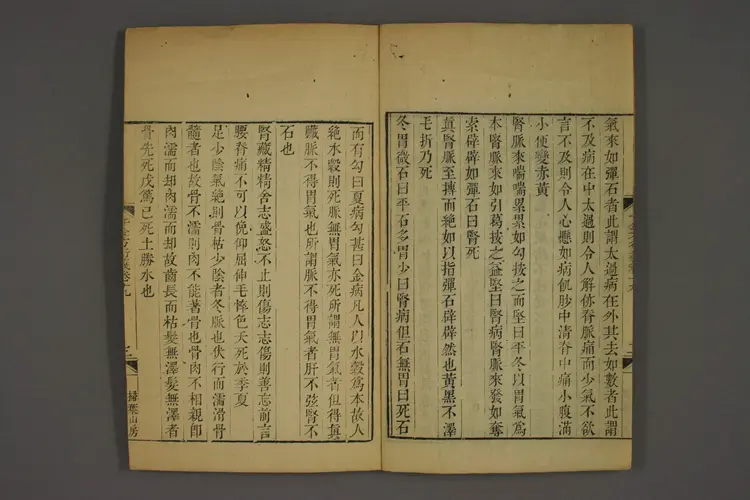 氣來如彈石者此謂太過病在外其去如數者此謂
不及病在中太過則令人解㑊脊脈痛而少氣不欲
言不及則令人心懸如病飢䏚中清脊中痛小腹滿
小便變赤黃
腎脈來喘喘累累如勾按之而堅曰平冬以胃氣為
本腎脈來如引葛按之益堅曰腎病腎脈來發如奪
索辟辟如彈石曰腎死
真腎脈至摶而絕如以指彈石辟辟然也黃黑不澤
毛折乃死
冬胃微石曰平石多胃少曰腎病但石無胃曰死石
而有勾曰夏病勾甚曰今病凡人以水穀為本故人
絕水穀則死脈無胃氣亦死所謂無胃氣者但得真
臟脈不得胃氣也所謂脈不得胃氣者肝不弦腎不
石也
腎藏精精舍志盛怒不止則傷志志傷則善忘前言
腰脊痛不可以俛仰屈伸毛悴色夭死於季夏
足少陰氣絕則骨枯少陰者冬脈也伏行而濡滑骨
髓者也故骨不濡則肉不能著骨也骨肉不相親即
肉濡而却肉濡而却故齒長而枯髮無澤髮無澤者
骨先死戊篤己死土勝水也
掃葉山房